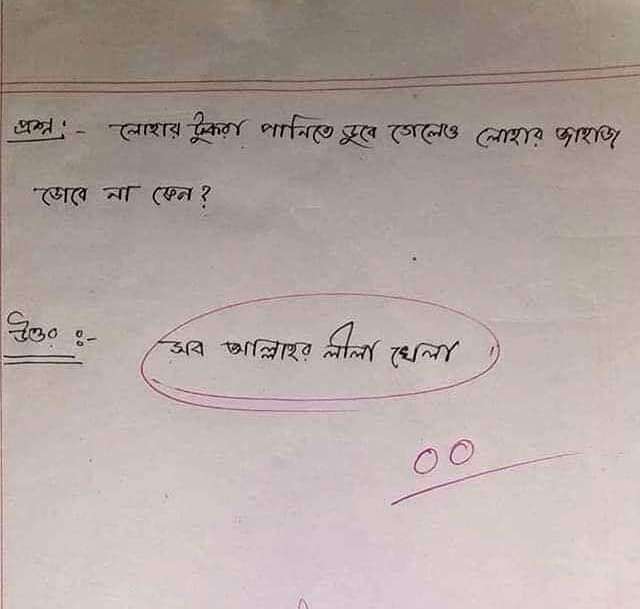 প্রশ্ন :- লোহার টুকরা পানিতে ডুবে গেলেও লোহার জাহাজ
ডোবে না কেন ?
উত্তর ঃ-
সব আল্লাহর লীলা খেলা
00